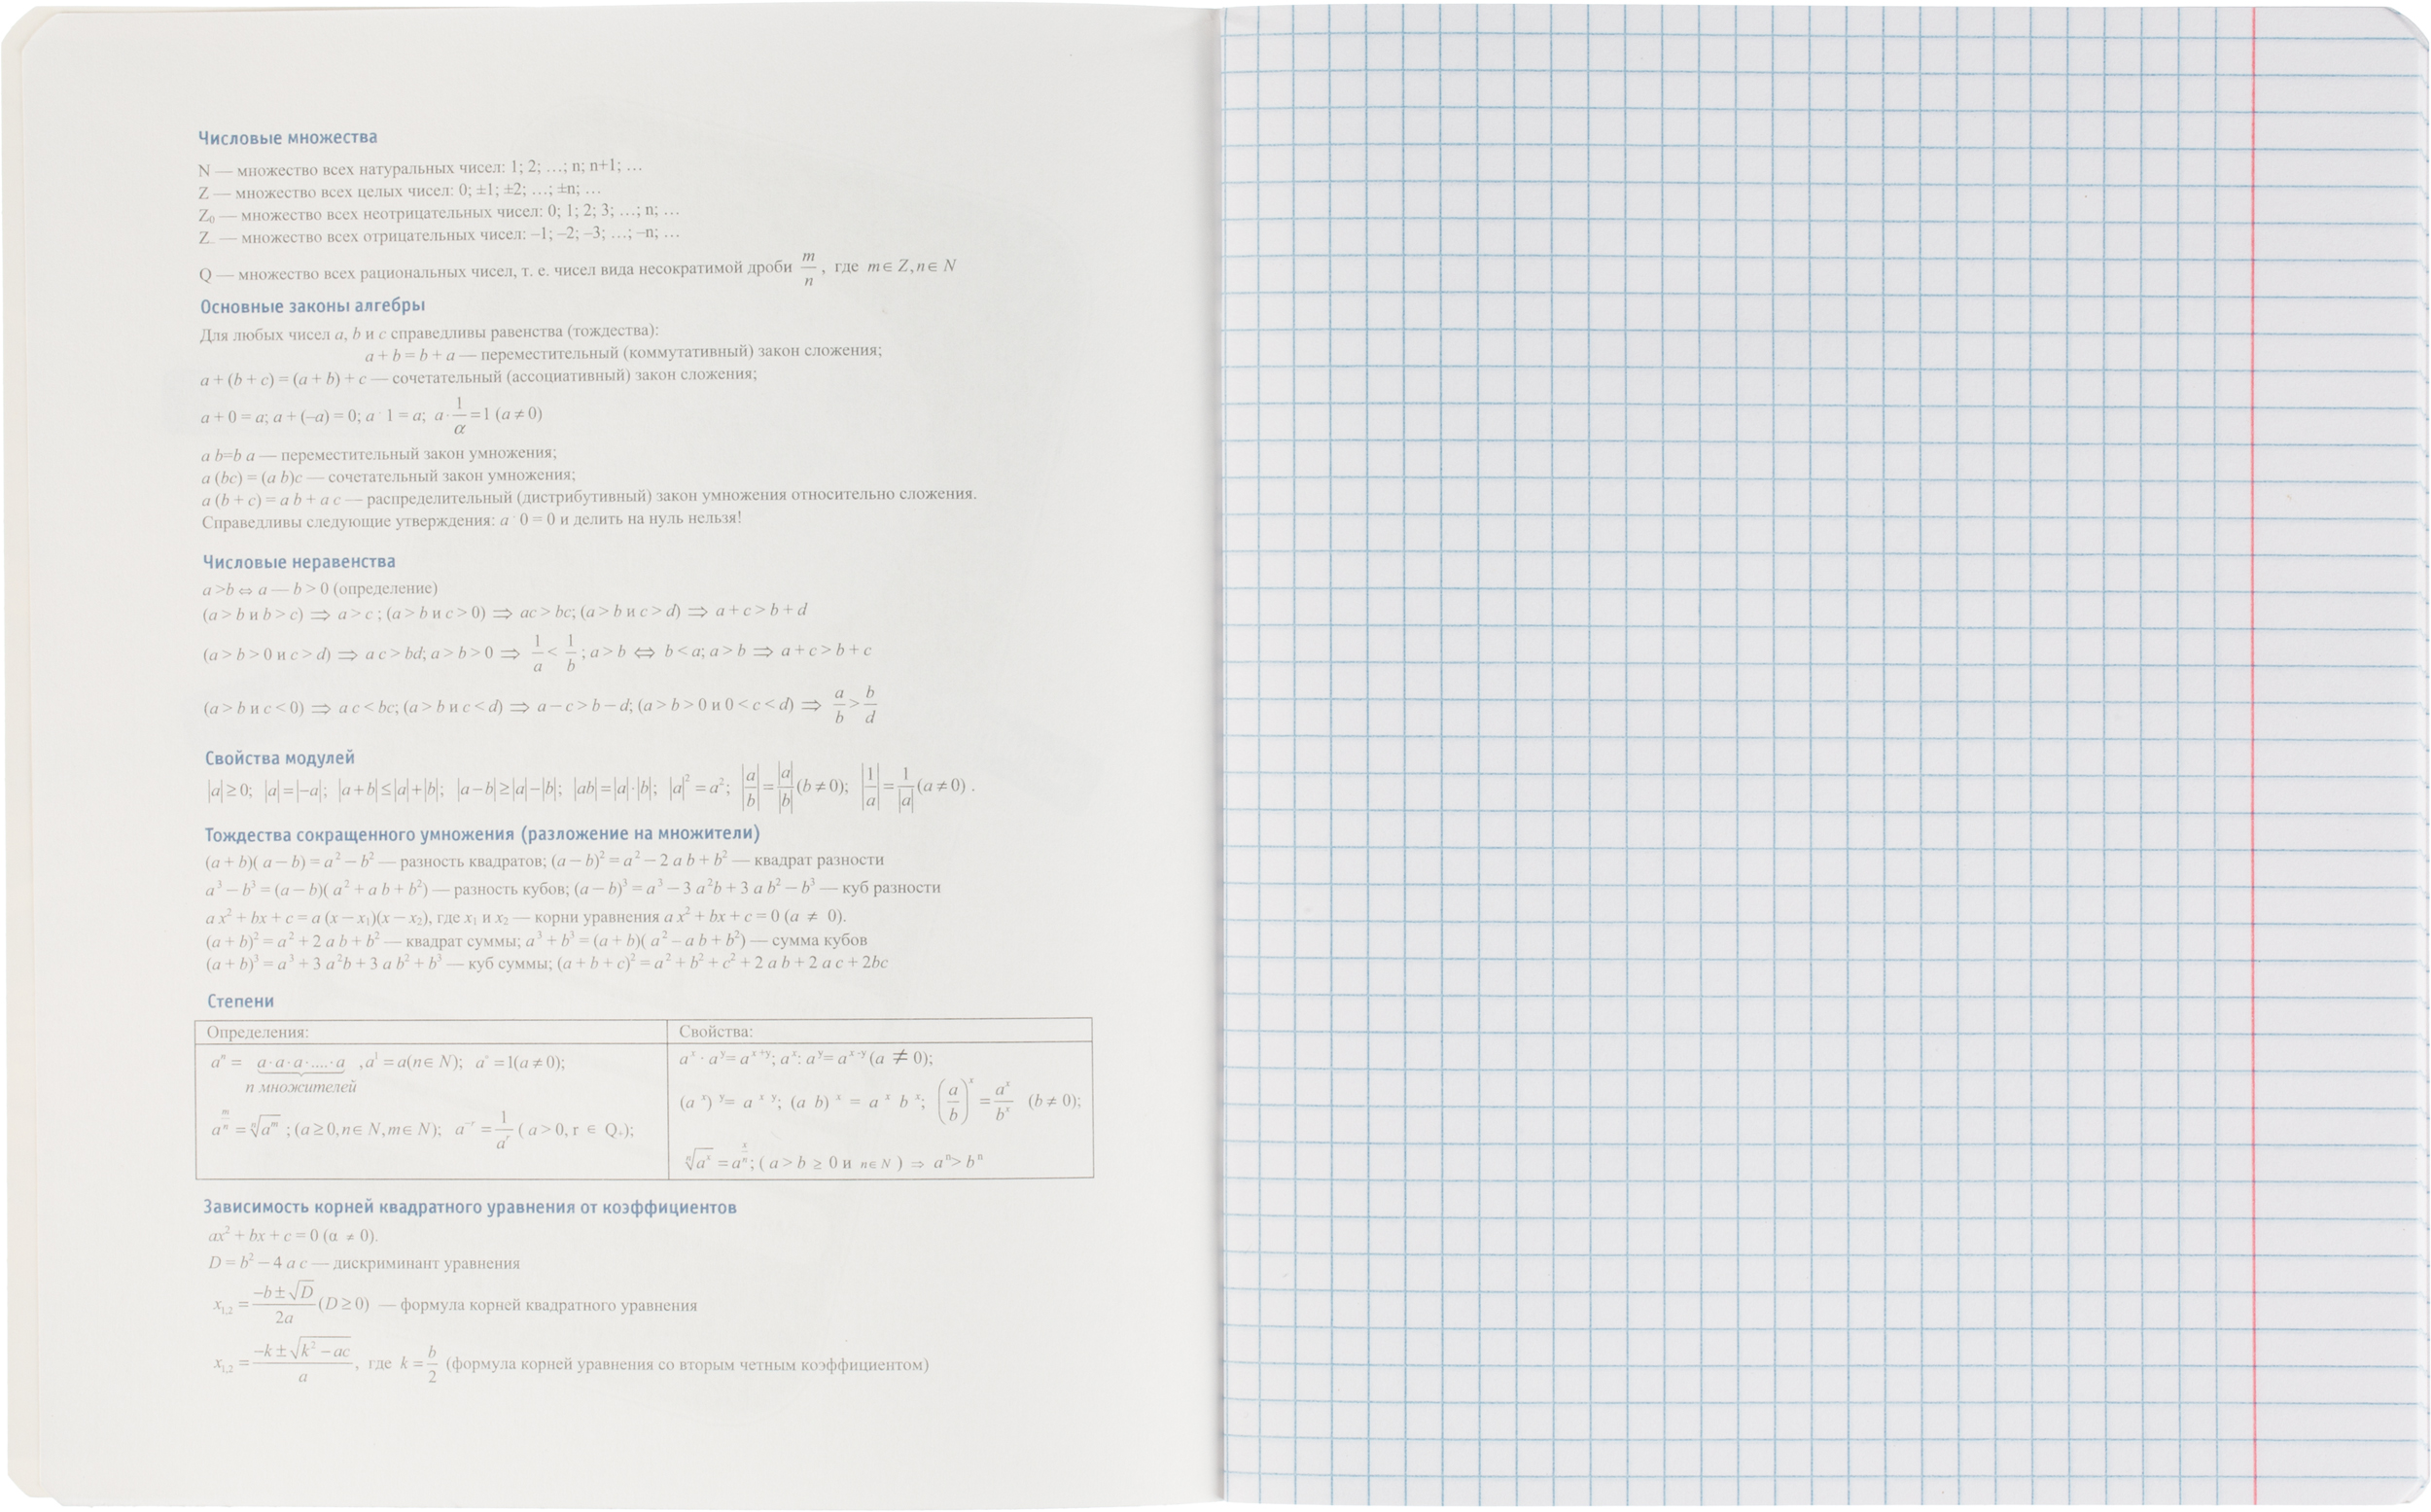 Числовые множества
N — множество всех натуральных чисел: 1; 2; …; n; n+1; …
Z — множество всех целых чисел: 0; ±1; ±2; …; ±n; …
Z₀ — множество всех неотрицательных чисел: 0; 1; 2; 3; …; n; …
Z₋ — множество всех отрицательных чисел: –1; –2; –3; …; –n; …
Q — множество всех рациональных чисел, т. е. чисел вида несократимой дроби m/n, где m∈Z,n∈N
Основные законы алгебры
Для любых чисел a, b и c справедливы равенства (тождества):
a + b = b + a — переместительный (коммутативный) закон сложения;
a + (b + c) = (a + b) + c — сочетательный (ассоциативный) закон сложения;
a + 0 = a; a + (–a) = 0; a · 1 = a; a · 1/α = 1 (a ≠ 0)
a b=b a — переместительный закон умножения;
a (bc) = (a b)c — сочетательный закон умножения;
a (b + c) = a b + a c — распределительный (дистрибутивный) закон умножения относительно сложения.
Справедливы следующие утверждения: a · 0 = 0 и делить на нуль нельзя!
Числовые неравенства
a >b ⇔ a — b > 0 (определение)
(a > b и b > c) ⇒ a > c ; (a > b и c > 0) ⇒ ac > bc; (a > b и c > d) ⇒ a + c > b + d
(a > b > 0 и c > d) ⇒ a c > bd; a > b > 0 ⇒ 1/a < 1/b ; a > b ⇔ b < a; a > b ⇒ a + c > b + c
(a > b и c < 0) ⇒ a c < bc; (a > b и c < d) ⇒ a – c > b – d; (a > b > 0 и 0 < c < d) ⇒ a/b > b/d
Свойства модулей
|a| ≥ 0; |a| = |–a|; |a+b| ≤ |a|+|b|; |a–b| ≥ |a|–|b|; |ab| = |a|·|b|; |a|² = a²; |a/b| = |a|/|b| (b ≠ 0); |1/a| = 1/|a| (a ≠ 0) .
Тождества сокращенного умножения (разложение на множители)
(a + b)( a – b) = a² – b² — разность квадратов; (a – b)² = a² – 2 a b + b² — квадрат разности
a³ – b³ = (a – b)( a² + a b + b²) — разность кубов; (a – b)³ = a³ – 3 a²b + 3 a b² – b³ — куб разности
a x² + bx + c = a (x – x₁)(x – x₂), где x₁ и x₂ — корни уравнения a x² + bx + c = 0 (a ≠ 0).
(a + b)² = a² + 2 a b + b² — квадрат суммы; a³ + b³ = (a + b)( a² – a b + b²) — сумма кубов
(a + b)³ = a³ + 3 a²b + 3 a b² + b³ — куб суммы; (a + b + c)² = a² + b² + c² + 2 a b + 2 a c + 2bc
Степени
Определения:
aⁿ = a·a·a·....·a ,a¹ = a(n∈N); a° = 1(a ≠ 0);
n множителей
a^(m/n) = ⁿ√a^m ; (a ≥ 0, n∈N, m∈N); a^(–r) = 1/a^r ( a > 0, r ∈ Q₊);
Свойства:
a^x · a^y = a^(x+y); a^x : a^y = a^(x-y) (a ≠ 0);
(a^x)^y = a^(x y); (a b)^x = a^x b^x; (a/b)^x = a^x/b^x (b ≠ 0);
ⁿ√a^x = a^(x/n); ( a > b ≥ 0 и n∈N ) ⇒ aⁿ > bⁿ
Зависимость корней квадратного уравнения от коэффициентов
ax² + bx + c = 0 (α ≠ 0).
D = b² – 4 a c — дискриминант уравнения
x₁,₂ = (–b ± √D)/2a (D ≥ 0) — формула корней квадратного уравнения
x₁,₂ = (–k ± √(k² – ac))/a, где k = b/2 (формула корней уравнения со вторым четным коэффициентом)